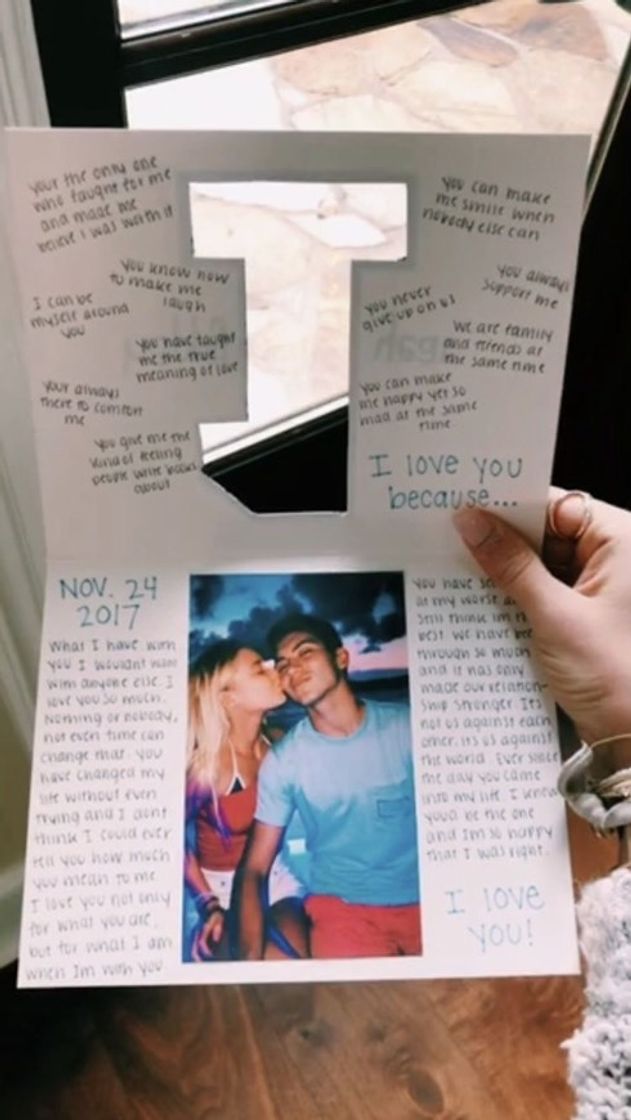 your the only one
who faught for me
and made me
believe I was worth it
You know how
to make me
laugh
I can be
myself around
you
You have taught
me the true
meaning of love
your always
there to comfort
me
You give me the
kind of feeling
people write books
about
You can make
me smile when
nobody else can
You always
support me
You never
give up on us
We are family
and friends at
the same time
You can make
me happy yet so
mad at the same
time
I love you
because...
NOV. 24
2017
What I have with
you I wouldnt want
with anyone else. I
love you so much.
Nothing or nobody,
not even time can
change that. You
have changed my
life without even
trying and I dont
think I could ever
tell you how much
you mean to me.
I love you not only
for what you are,
but for what I am
when Im with you
You have
at my worst
still think im
best. We have
through so much
and it has only
made our relation-
ship stronger. Its
not us against each
other, its us against
the world. Ever since
the day you came
into my life. I knew
youd be the one
and Im so happy
that I was right.
I love
you!